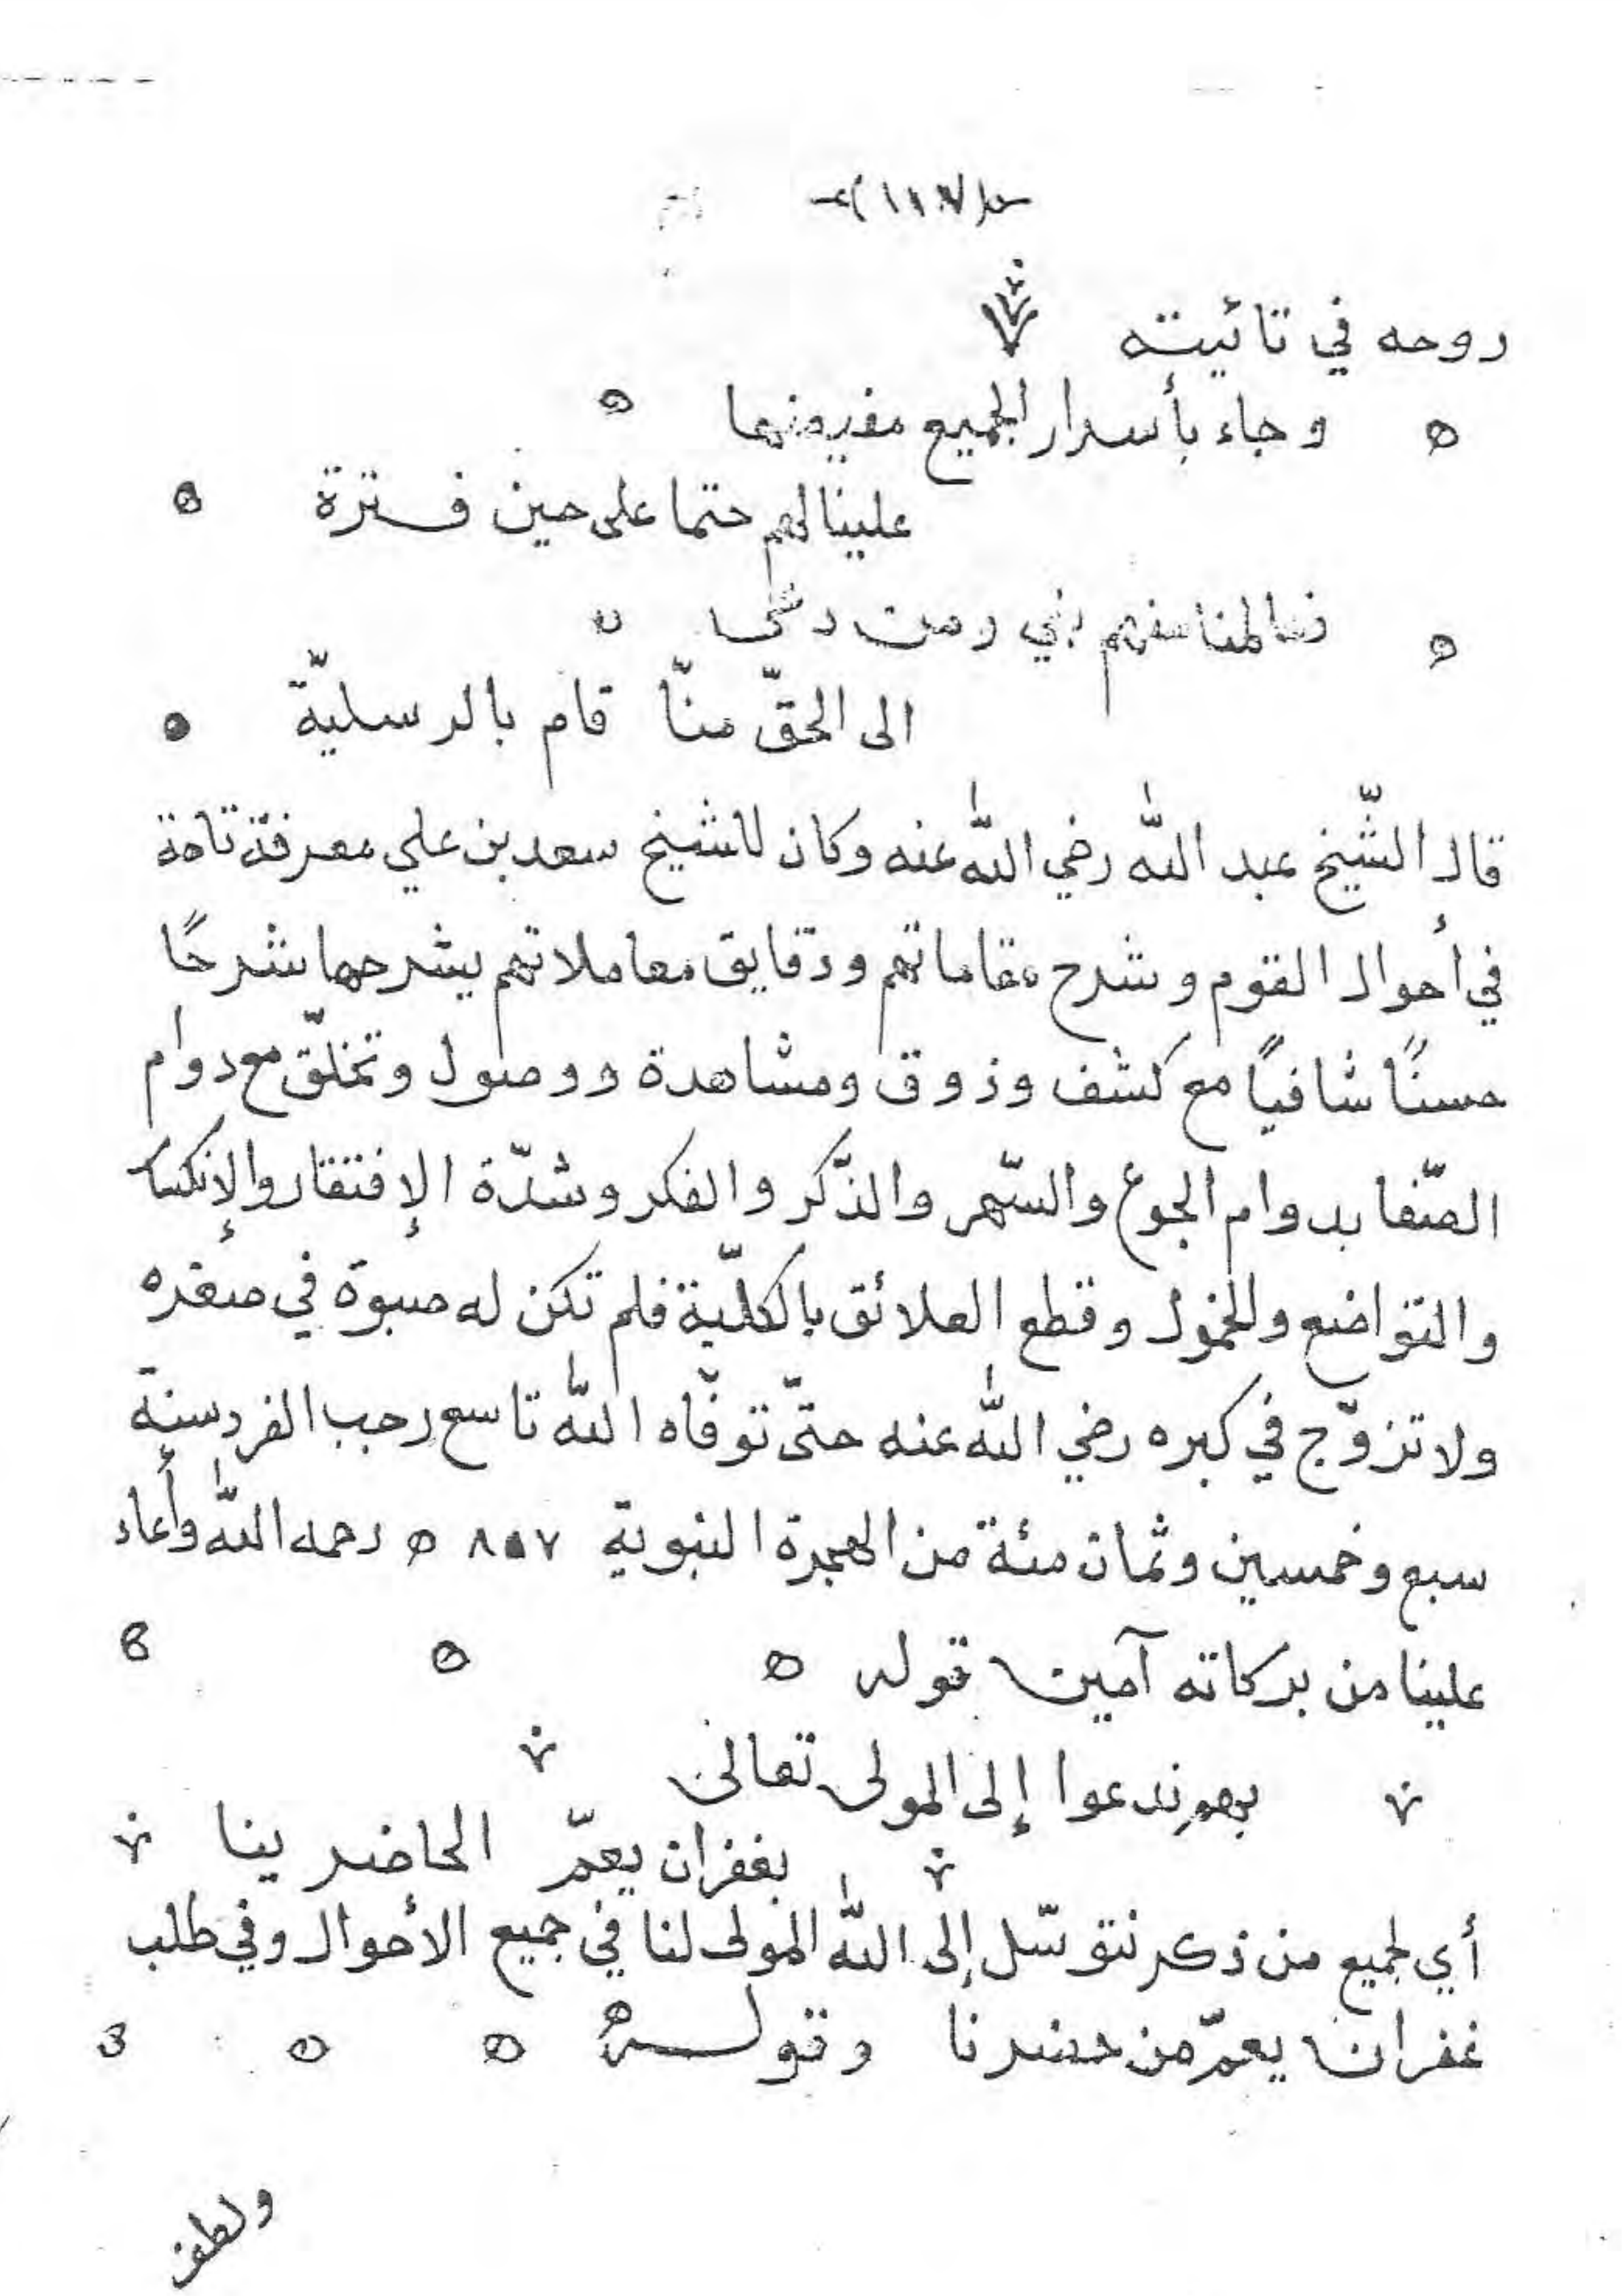 روحه في تائيته
وجاء بأسرار الجميع مفيضها
علينا لهم حتما على حين فترة
منهم نبي ومن دعى
الى الحقّ منّا قام بالرسليّة
قال الشّيخ عبد اللّٰه رضي اللّٰه عنه وكان للشيخ سعد بن علي معرفة تامة
في أحوال القوم وشرح مقاماتهم ودقايق معاملاتهم يشرحها شرحًا
حسنًا شافيًا مع كشف وذوق ومشاهدة ووصول وتخلّق مع دوام
الصّفا بدوام الجوع والسّهر والذّكر والفكر وشدّة الإفتقار والإنكسا
والتواضع والخمول وقطع العلائق بالكلّية فلم تكن له صبوة في صغره
ولا تزوّج في كبره رضي اللّٰه عنه حتّى توفّاه اللّٰه تاسع رجب الفرد سنة
سبع وخمسين وثمان مئة من الهجرة النبوية ٨٥٧ ه رحمه اللّٰه وأعاد
علينا من بركاته آمين قوله
بهم ندعوا إلى المولى تعالى
بغفران يعمّ الحاضرينا
أي لجميع من ذكر نتوسّل إلى اللّٰه المولى لنا في جميع الأحوال وفي طلب
غفران يعمّ من حضرنا وقوله
ولطف